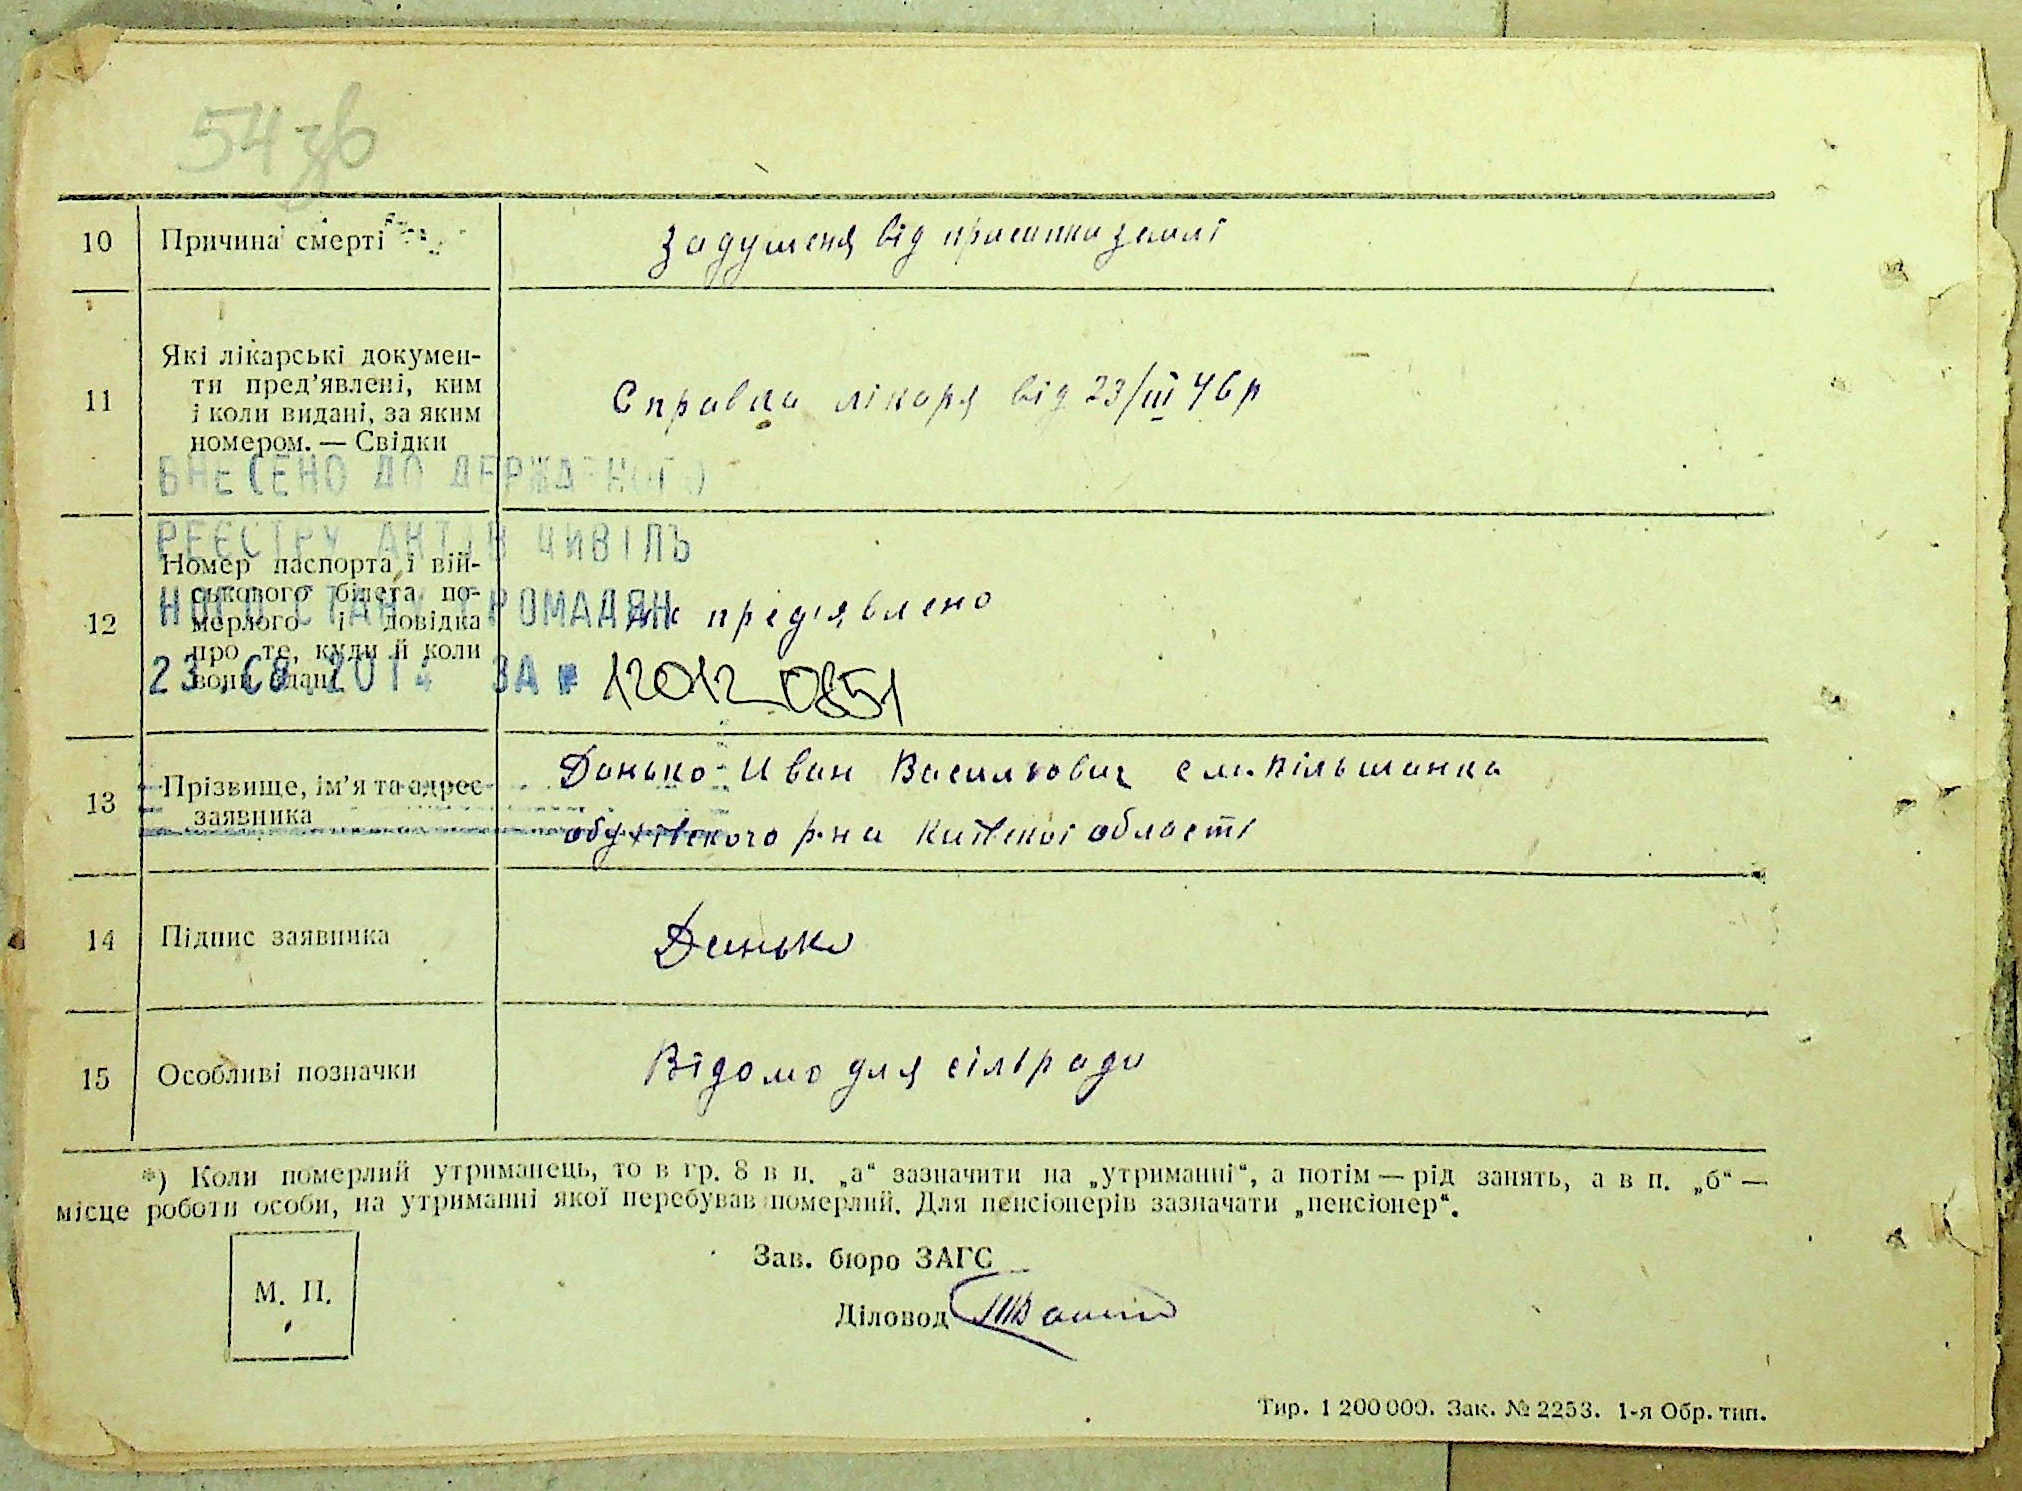 54зв
10 Причина смерті Задушеня від присипки землі
11 Які лікарські докумен-
ти пред’явлені, ким
і коли видані, за яким
номером. — Свідки
Справка лікаря від 23/III 46р
ВНЕСЕНО ДО ДЕРЖАВНОГО
РЕЄСТРУ АКТІВ ЦИВІЛЬ
НОГО СТАНУ ГРОМАДЯН
23.08.2012 ЗА № 12012 0851
12 Номер паспорта і вій-
ськового білета по-
мерлого і довідка
про те, куди й коли
вони здані
не предявлено
13 Прізвище, ім’я та адрес
заявника
Данько Иван Васильович см. Вільшанка
обухівского р-на Київскої області
14 Підпис заявника Данько
15 Особливі позначки Відомо для сільради
*) Коли померлий утриманець, то в гр. 8 в п. „а“ зазначити на „утриманні“, а потім — рід занять, а в п. „б“ —
місце роботи особи, на утриманні якої перебував померлий. Для пенсіонерів зазначати „пенсіонер“.
Зав. бюро ЗАГС
М. П.
Діловод
Тир. 1 200 000. Зак. № 2253. 1-я Обр. тип.